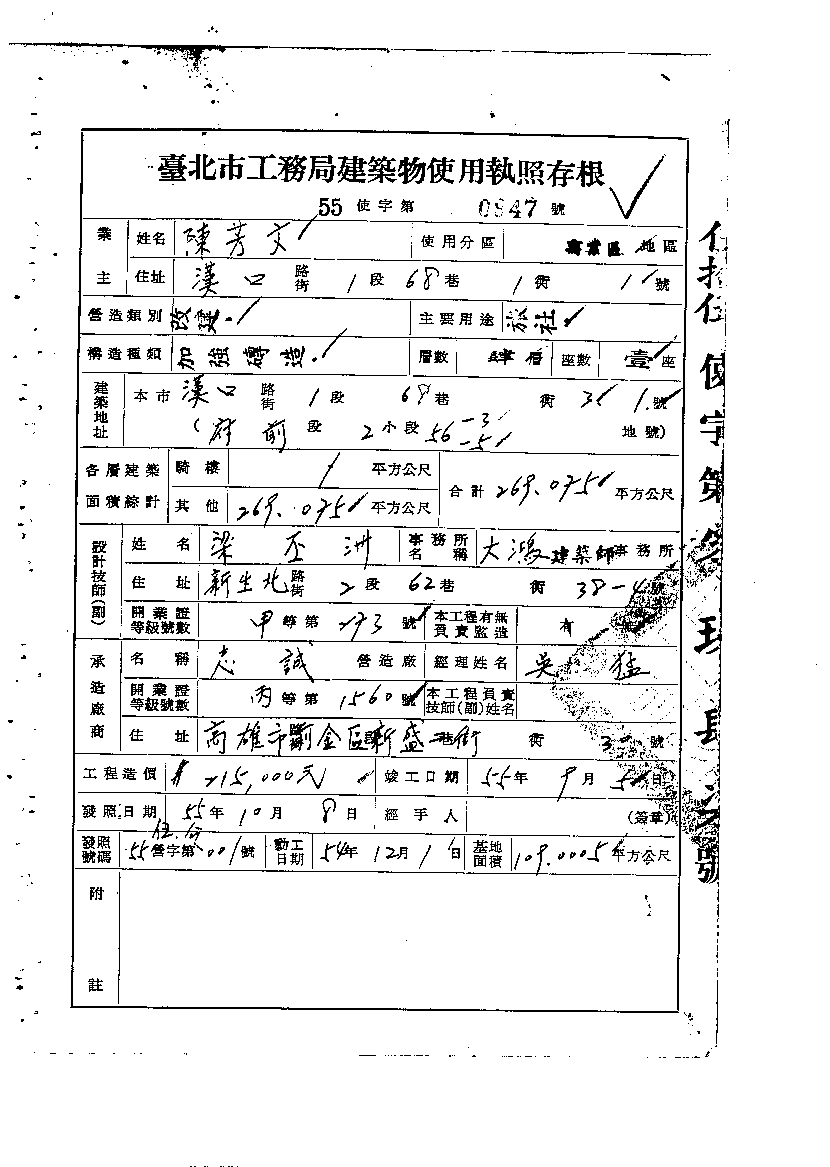 臺北市工務局建築物使用執照存根
55 使字第 0847 號
業主 姓名 陳芳文 使用分區 商業區 地區
住址 漢口 路街 1段 68巷 1衖 1號
營造類別 改建 主要用途 旅社
構造種類 加強磚造 層數 肆層 座數 壹座
建築地址 本市 漢口 路街 1段 68巷 衖 3 1號
(府前段 2小段 56-3 -5 地號)
各層建築面積綜計 騎樓 / 平方公尺 合計 269.075 平方公尺
其他 269.075 平方公尺
設計技師(副) 姓名 梁丕洲 事務所名稱 大鴻建築師事務所
住址 新生北 路街 2段 62巷 衖 38-4號
開業證等級號數 甲等第 273 號 本工程有無負責監造 有
承造廠商 名稱 志誠 營造廠 經理姓名 吳猛
開業證等級號數 丙等第 1560 號 本工程負責技師(副)姓名
住址 高雄市前金區新盛街 衖 3 號
工程造價 215,000元 竣工日期 55年 9月 5日
發照日期 55年 10月 8日 經手人 (簽章)
發照號碼 55營字第001號 動工日期 54年 12月 1日 基地面積 109.0005 平方公尺
附註
伍拾伍使字第
號